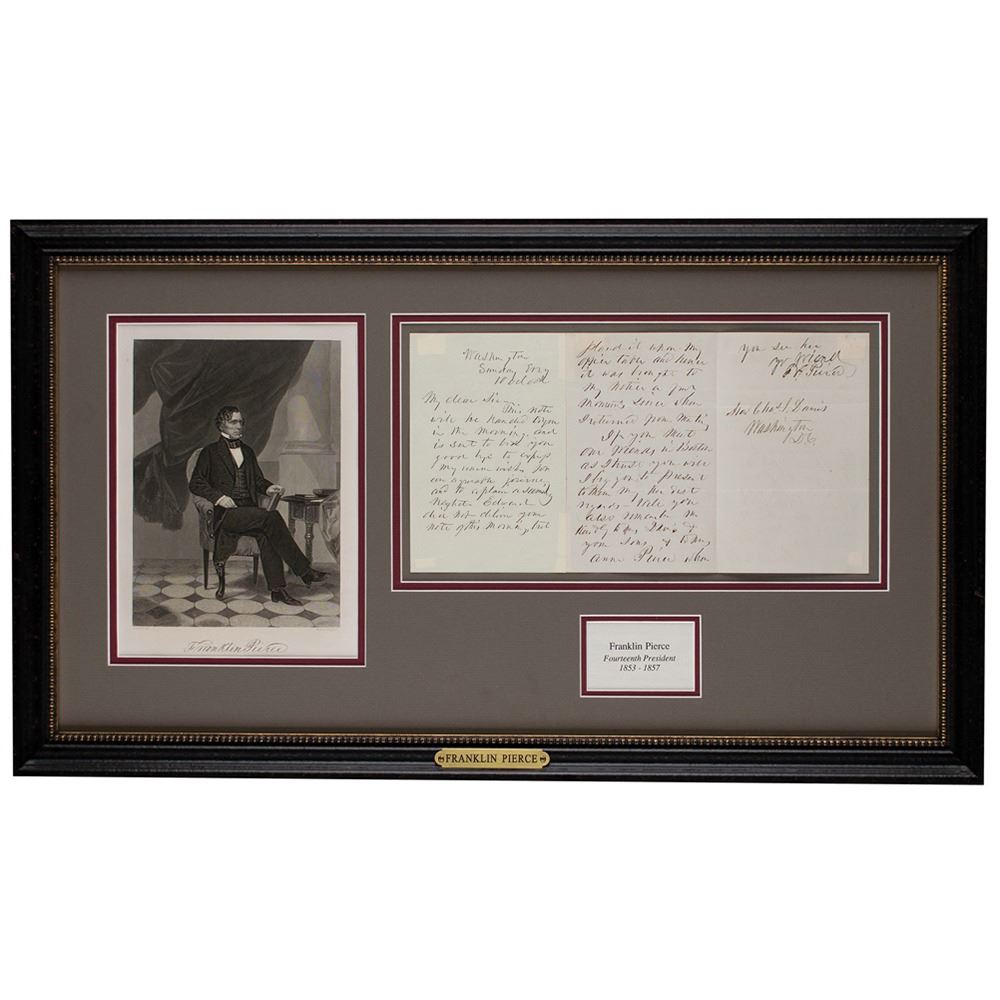 Washington
Sunday
10 o'clock
My dear Sir,
This note
will be handed to you
in the morning, and
is sent to bid you
good bye to express
my warm wish for
an agreeable journey,
and to explain
Edward
did not deliver your
note of this morning, but
placed it upon my
office table and hence
it was brought to
my notice a few
moments since when
I returned from
If you meet
our friends in Boston
as I trust you will
I beg you to present
to them my best
regards - Will you
also remember me
kindly to Mrs Davis &
your sons, & to Miss
Anne Pierce when
you see her
Yr friend
F. Pierce
Hon Chas. S. Davis
Washington
D.C.
Franklin Pierce
Franklin Pierce
Fourteenth President
1853 - 1857
FRANKLIN PIERCE